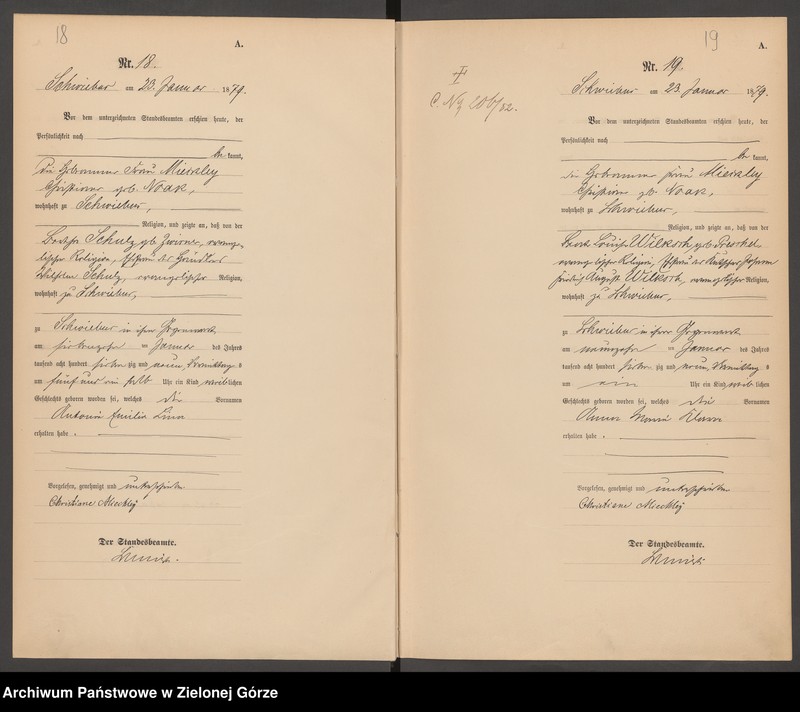 18
A.
Nr. 18.
Schwiebus am 23. Januar 1879.
Vor dem unterzeichneten Standesbeamten erschien heute, der
Persönlichkeit nach
be kannt,
die Hebamme Frau Mierkley
Christiane geb. Noak,
wohnhaft zu Schwiebus,
Religion, und zeigte an, daß von der
Schulz geb. evange-
lischer Religion, Ehefrau des
Wilhelm Schulz, evangelischer Religion,
wohnhaft zu Schwiebus,
zu Schwiebus in ihrer Gegenwart
am siebzehnten Januar des Jahres
tausend acht hundert siebenzig und neun, Vormittags
um fünf und ein halb Uhr ein Kind weiblichen
Geschlechts geboren worden sei, welches die Vornamen
Antonie Emilie Lina
erhalten habe.
Vorgelesen, genehmigt und unterschrieben
Christiane Mierkley
Der Standesbeamte.
19
A.
C. No 206/82.
Nr. 19.
Schwiebus am 23 Januar 1879.
Vor dem unterzeichneten Standesbeamten erschien heute, der
Persönlichkeit nach
be kannt,
die Hebamme Frau Mierkley
Christiane geb. Noak,
wohnhaft zu Schwiebus,
Religion, und zeigte an, daß von der
Louise Wilkosch geb.
evangelischer Religion, Ehefrau des
Friedrich August Wilkosch, evangelischer Religion,
wohnhaft zu Schwiebus,
zu Schwiebus in ihrer Gegenwart
am neunzehnten Januar des Jahres
tausend acht hundert siebenzig und neun, Vormittags
um ein Uhr ein Kind weiblichen
Geschlechts geboren worden sei, welches die Vornamen
Anna Maria Klara
erhalten habe.
Vorgelesen, genehmigt und unterschrieben
Christiane Mierkley
Der Standesbeamte.
Archiwum Państwowe w Zielonej Górze